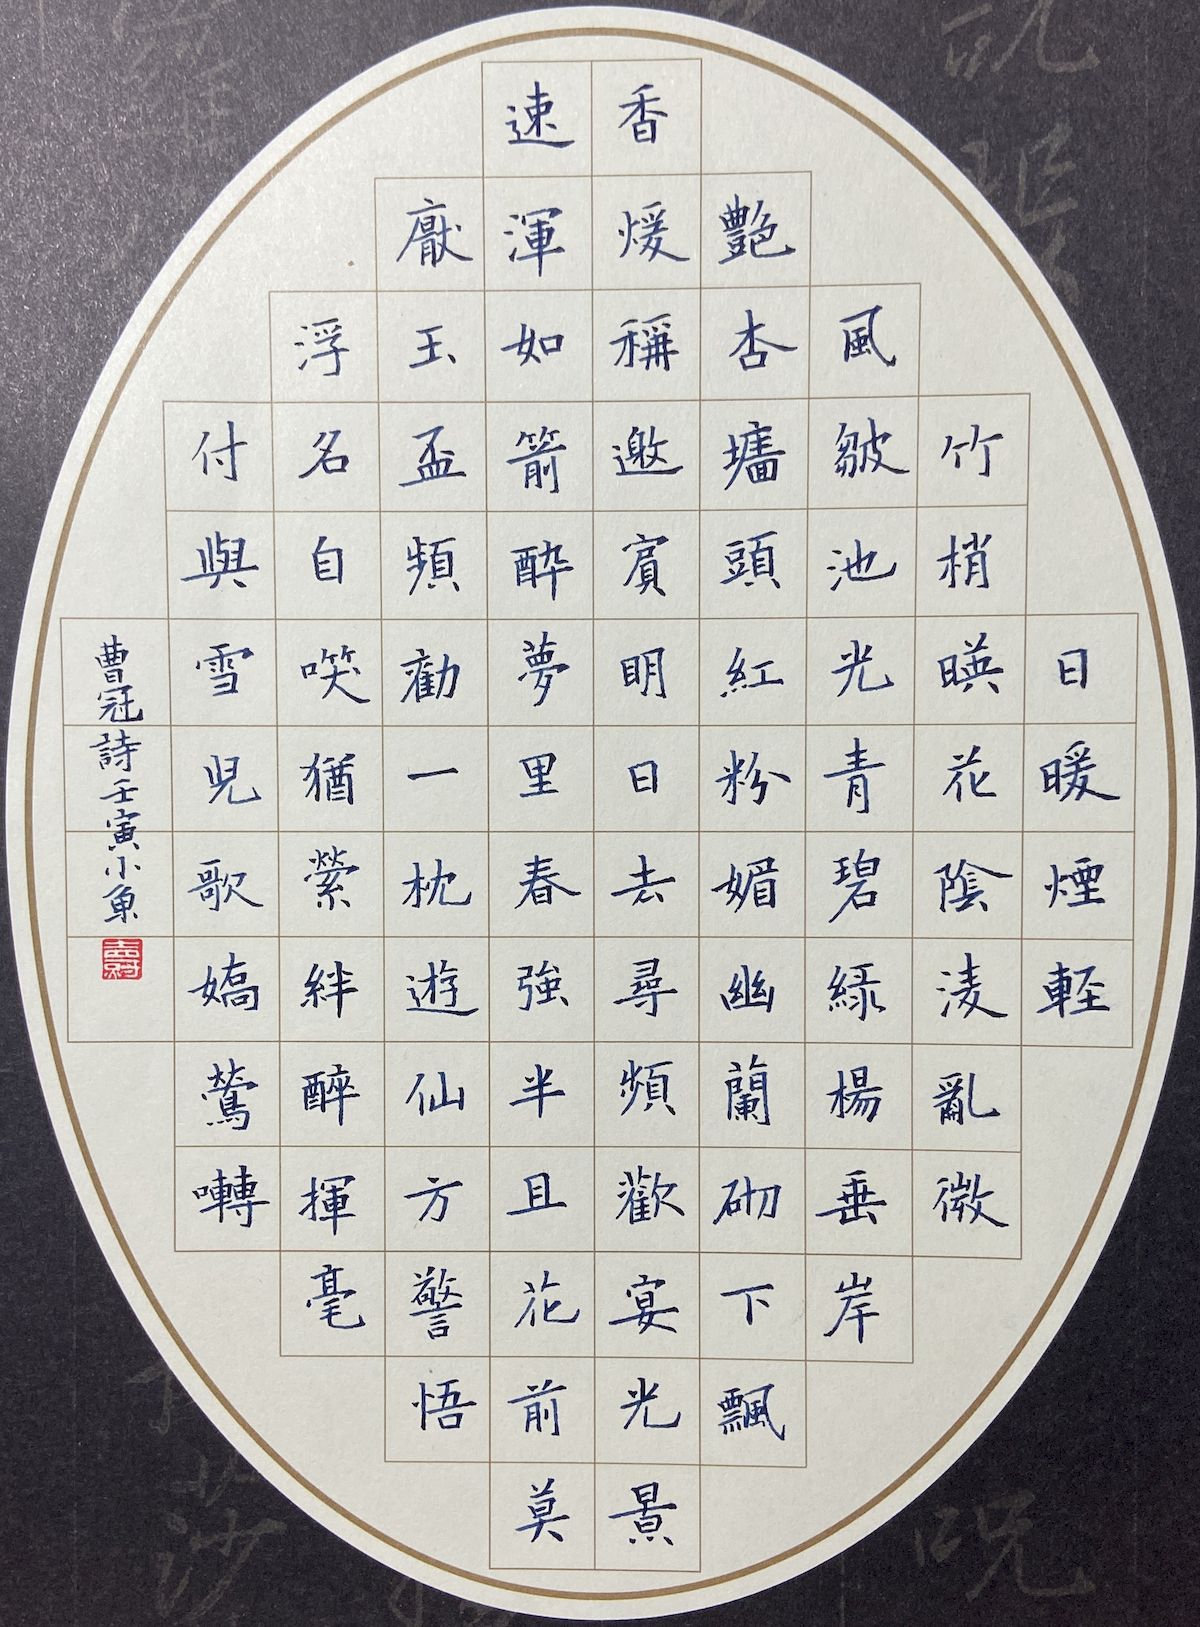 日暖煙輕
竹梢暎花陰淩亂微
風皺池光青碧綠楊垂岸
艷杏墻頭紅粉媚幽蘭砌下飄
香煖稱邀賓明日去尋頻歡宴光景
速渾如箭酔夢里春強半且花前莫
厭玉盃頻勸一枕遊仙方警悟
浮名自喫猶縈絆醉揮毫
付與雪兒歌嬌鶯囀
曹冠詩壬寅小魚